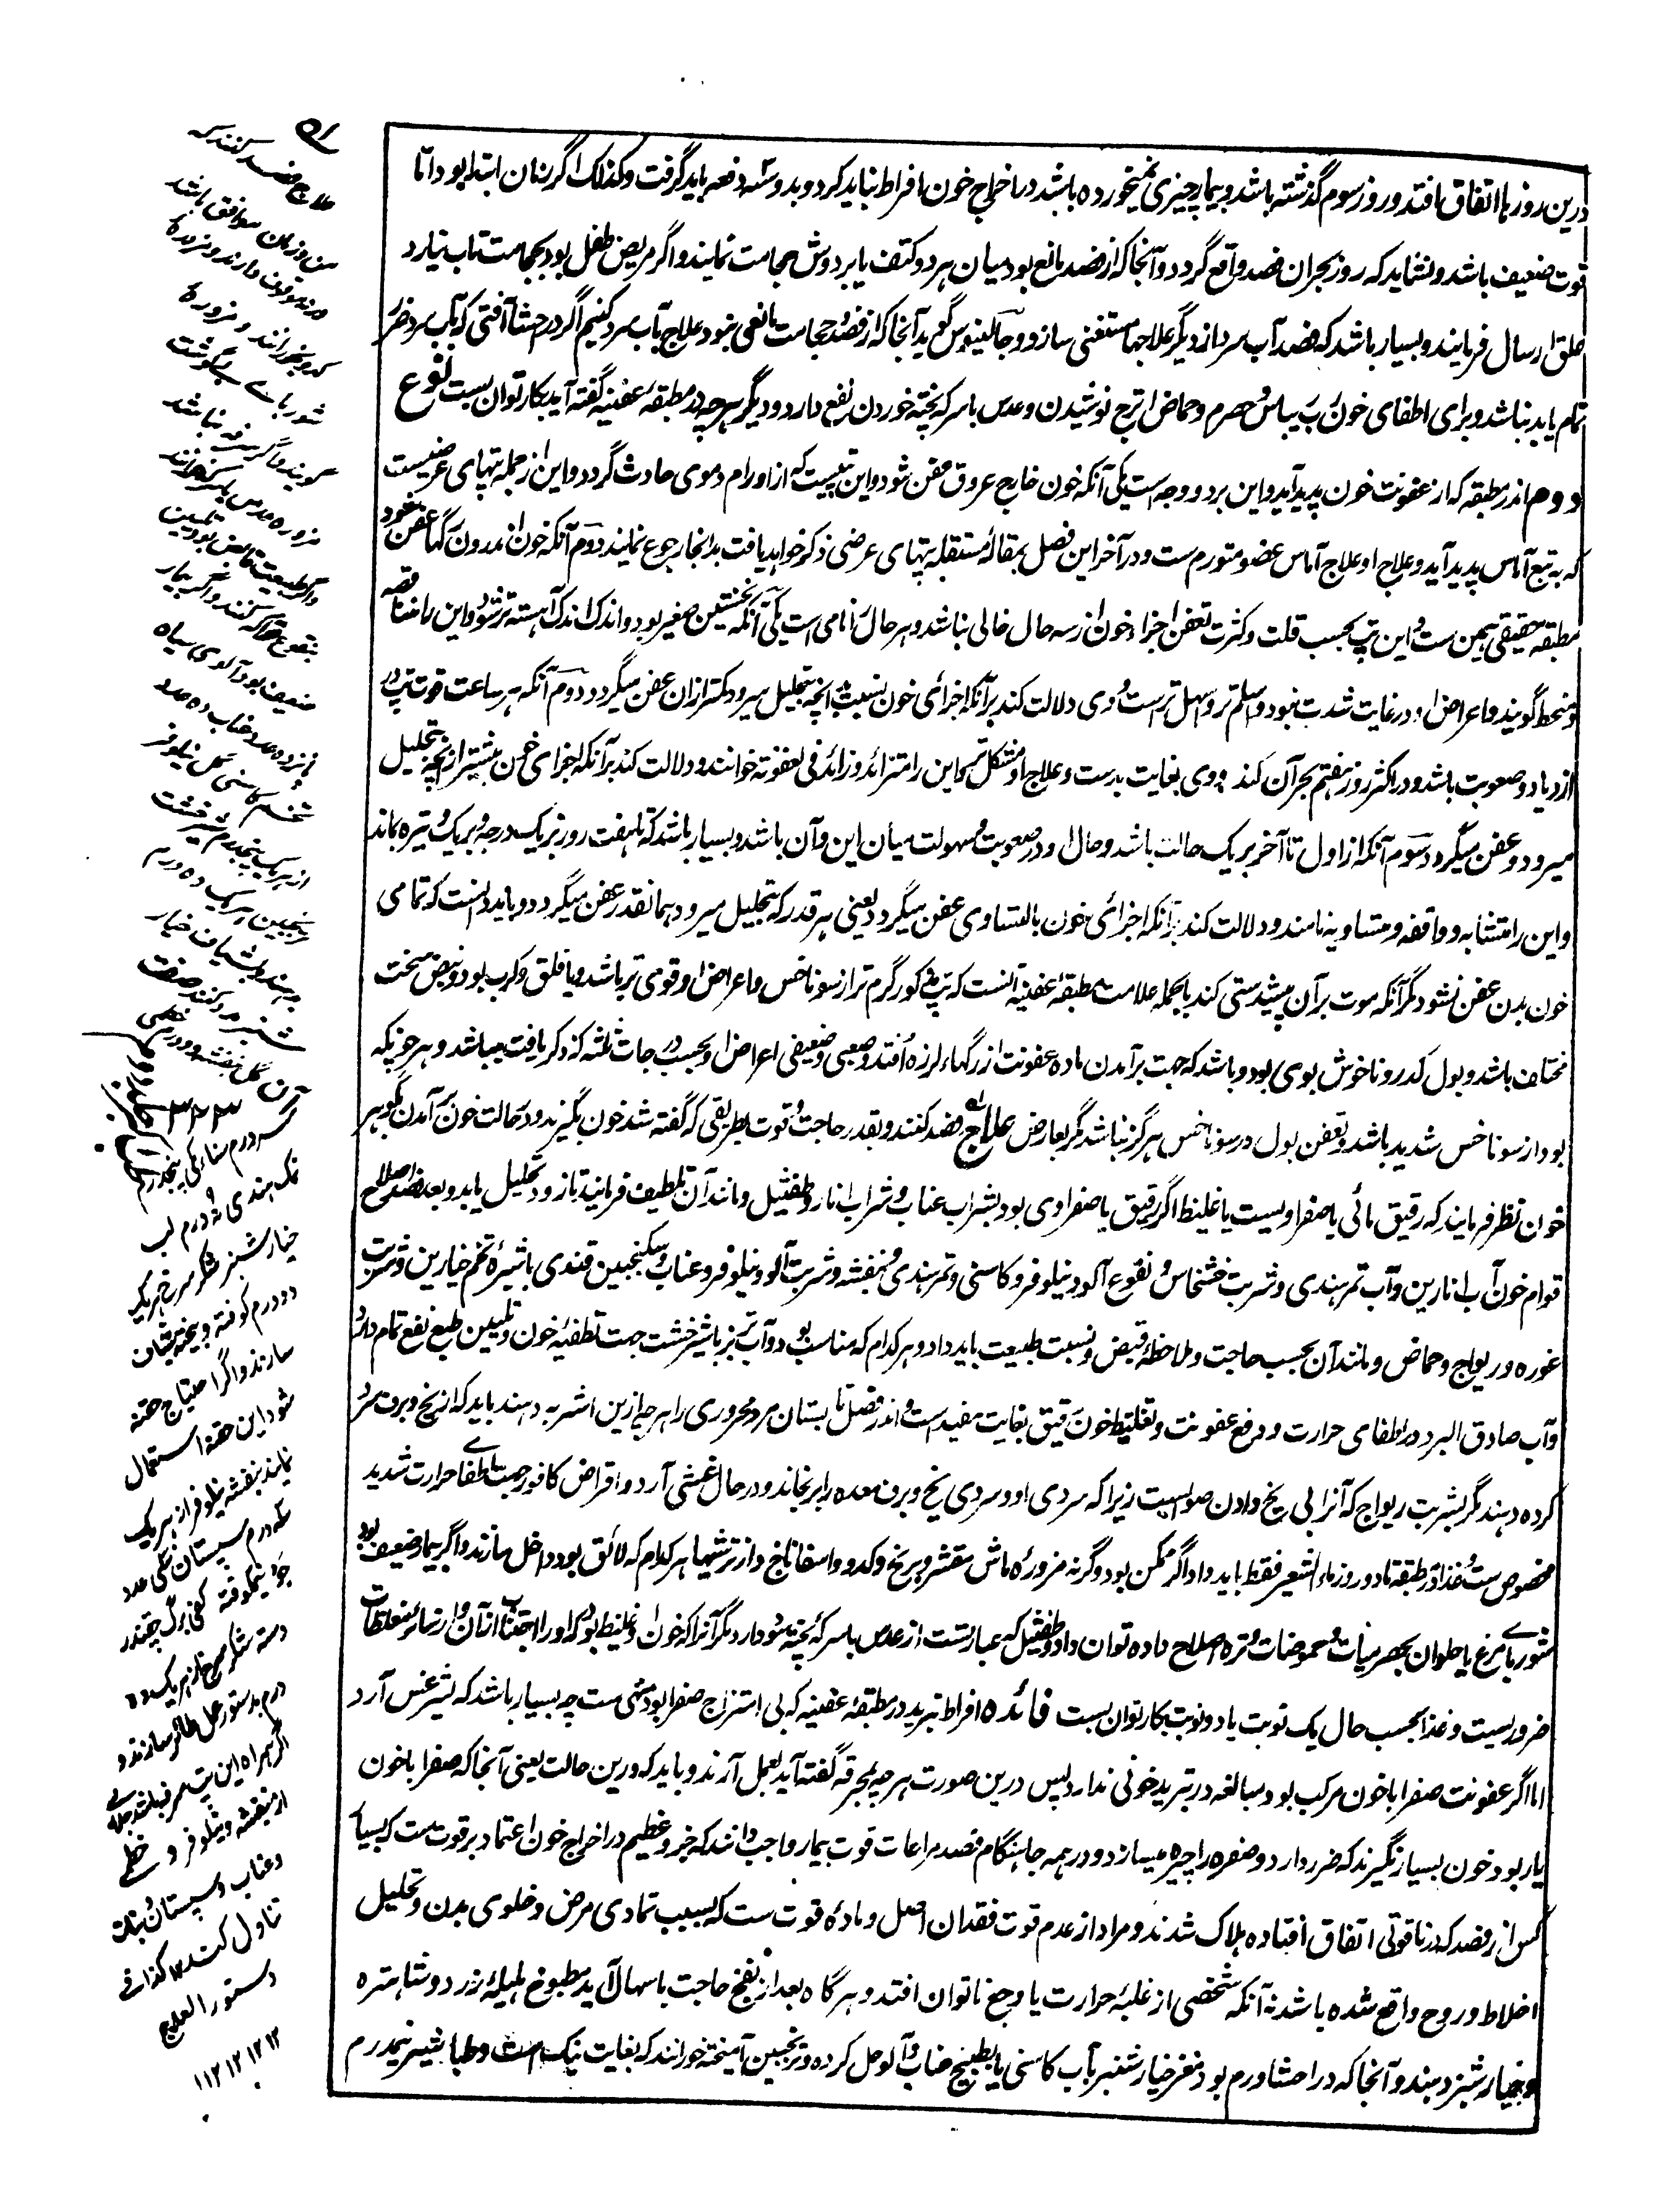 درین روزها اتفاق نافتد و روز سوم گذشته باشد و بیمار چیزی نمیخورده باشد در اخراج خون افراط نباید کرد و بدو سه دفعه باید گرفت و کذلک اگر زمان ابتدا بود اما
قوت ضعیف باشد و نشاید که روز بحران فصد واقع گردد و آنجا که از فصد مانع بود میان هر دو کتف یا بر دوش حجامت نمایند و اگر مریض طفل بود بحجامت تاب نیارد
علق ارسال فرمایند و بسیار باشد که فصد آب سرد از دیگر علاجها مستغنی سازد و جالینوس گوید آنجا که از فصد و حجامت مانعی نبود علاج بآب سرد کنیم اگر در احشا آفتی که بآب سرد ضرر
تمام یابد نباشد و برای اطفای خون رب ریباس و حصرم و حماض اترج نوشیدن و عدس با سرکه پخته خوردن نفع دارد و دیگر هر چه در مطبقه عفنیه گفته آید بکار توان بست نوع
دوم اندر مطبقه که از عفونت خون پدید آید و این بر دو وجه است یکی آنکه خون خارج عروق عفن شود و این تبیست که از اورام دموی حادث گردد و این از جمله تپهای عرضیست
که به تبع آماس پدید آید و علاج او علاج آماس عضو متورم ست و در آخر این فصل بمقالهٔ مستقله تپهای عرضی ذکر خواهد یافت بدانجا رجوع نمایند دوم آنکه خون اندرون رگها عفن شود
مطبقه حقیقی همین ست و این تپ بحسب قلت و کثرت تعفن اجزاء خون از سه حال خالی نباشد و هر حال را نامی است یکی آنکه نخستین صغیر بود و اندک اندک آهسته تر شود و این را متناقصه
و منحط گویند و اعراض او در غایت شدت نبود و اسلم تر و سهل تر ست و وی دلالت کند بر آنکه اجزای خون نسبت بآنچه بتحلیل میرود کمتر ازان عفن میگردد دوم آنکه هر ساعت قوت تپ در
ازدیاد و صعوبت باشد و در اکثر روز هفتم بحران کند و وی بغایت بد ست و علاج او مشکل تر و این را متزائد و زائد فی العفونه خوانند و دلالت کند بر آنکه اجزای خون بیشتر از آنچه بتحلیل
میرود و عفن میگردد سوم آنکه از اول تا آخر بر یک حالت باشد و حال او در صعوبت و سهولت میان این و آن باشد و بسیار باشد که تا هفت روز بر یک درجه و بر یک وتیره بماند
و این را متشابه و واقفه و متساویه نامند و دلالت کند بر آنکه اجزای خون بالتساوی عفن میگردد یعنی هر قدر که بتحلیل میرود همانقدر عفن میگردد و باید دانست که تمامی
خون بدن عفن نشود مگر آنکه موت بر آن پیشدستی کند بالجمله علامت مطبقهٔ عفنیه آنست که تپ مذکور گرم تر از سوناخس و اعراض او قوی تر باشد و با قلق و کرب بود و نبض سخت
مختلف باشد و بول کدر و ناخوش بوی بود و باشد که جهت برآمدن ماده عفونت از رگها لرزه افتد و صعبی و ضعیفی اعراض او بحسب درجات ثلثه که ذکر یافت میباشد و هر چونکه
بود از سوناخس شدید باشد و تعفن بول در سوناخس هرگز نباشد مگر بعارض علاج فصد کنند و بقدر حاجت و قوت بطریقی که گفته شد خون بگیرند و در حالت خون برآمدن بگوهر
خون نظر فرمایند که رقیق مائی یا صفراویست یا غلیظ اگر رقیق یا صفراوی بود بشراب عناب و شراب انار و طفشیل و مانند آن تلطیف فرمایند تا زود تحلیل یابد و بعد فصد اصلاح
قوام خون بآب انارین و آب تمرهندی و شربت خشخاش و نقوع آلو و نیلوفر و کاسنی و تمرهندی و بنفشه و شربت آلو و نیلوفر و عناب و سکنجبین قندی با شیرهٔ تخم خیارین و شربت
غوره و ریواج و حماض و مانند آن بحسب حاجت و ملاحظهٔ قبض و نسبت طبیعت باید داد و هر کدام که مناسب بود و آب تربز با شیرخشت جهت تطفیهٔ خون و تلیین طبع نفع تمام دارد
و آب صادق البرد در اطفای حرارت و دفع عفونت و تغلیظ خون رقیق بغایت مفید ست و اندر فصل تابستان مر محروری را هر چه ازین اشربه دهند باید که از یخ و برف سرد
کرده دهند مگر شربت ریواج که آنرا بی یخ دادن صوابست زیرا که سردی او و سردی یخ و برف معده را برنجاند و در حال غشی آرد و اقراص کافور جهت اطفای حرارت شدید
مخصوص ست و غذا در مطبقه تا دو روز ماء الشعیر فقط باید داد اگر ممکن بود و گرنه مزورهٔ ماش مقشر و برنج و کدو و اسفاناخ و از ترشیها هر کدام که لائق بود داخل سازند و اگر بیمار ضعیف بود
شوربای مرغ یا حلوان بحصرمیات و حموضات و تره اصلاح داده توان داد و طفشیل که عبارتست از عدس با سرکه پخته سود دارد مگر آنرا که خون او غلیظ بود که او را اجتناب ازآن و از سائر مغلظات
ضروریست و غذا بحسب حال یک نوبت یا دو نوبت بکار توان بست فائده افراط تبرید در مطبقهٔ عفنیه که بی امتزاج صفرا بود منهی ست چه بسیار باشد که لیثرغس آرد
اما اگر عفونت صفرا با خون مرکب بود مبالغه در تبرید خوفی ندارد پس درین صورت هر چه بمحرقه گفته آید بعمل آرند و باید که درین حالت یعنی آنجا که صفرا با خون
یار بود خون بسیار نگیرند که ضرر دارد و صفرا را چیره میسازد و در همه جا هنگام فصد مراعات قوت بیمار واجب دانند که جزو عظیم در اخراج خون اعتماد بر قوت ست که بسیار
کس از فصد که در ناقوتی اتفاق افتاده هلاک شدند و مراد از عدم قوت فقدان اصل و مادهٔ قوت ست که بسبب تمادی مرض و خلوی بدن و تحلیل
اخلاط و روح واقع شده باشد نه آنکه شخصی از غلبهٔ حرارت یا وجع ناتوان افتد و هرگاه بعد از نضج حاجت باسهال آید مطبوخ هلیلهٔ زرد و شاهتره
و خیارشنبر دهند و آنجا که در احشا ورم بود مغز خیارشنبر بآب کاسنی یا بطبیخ عناب و آلو حل کرده و ترنجبین آمیخته خورانند که بغایت نیک ست و طباشیر نیمدرم
علاج فصد کنند که
سن و زمان موافق باشد
ورنه موقوف دارند و مزوره
کدو بخورانند و مزورهٔ
شوربای بیگوشت
گویند و اگر سرفه نباشد
مزوره عدس با سرکه خورانند
و اگر طبیعت قابض بود تلیین
بنقوع فواکه کنند و اگر بیمار
ضعیف بود آلوی سیاه
پانزده عدد عناب ده عدد
تخم کاسنی گل نیلوفر
از هر یک پنجدرم شیرخشت
ترنجبین هر یک ده درم
بدهند و بشیاف خیار
شنبر مدد کنند صفت
آن گل بنفشه دو درم خطمی
سه درم سناء مکی پنجدرم
نمک هندی دو درم لب
خیارشنبر شکر سرخ هر یک
دو درم کوفته و بیخته شیاف
سازند و اگر احتیاج حقنه
شود این حقنه استعمال
نمایند بنفشه نیلوفر از هر یک
سه درم سپستان سی عدد
جو نیمکوفته کفی برگ چقندر
دسته شکر سرخ از هر یک ده
درم بدستور حل طاهر سازند و
اگر همراه این تپ سرفه باشد جلاب
از بنفشه و نیلوفر و خطمی
و عناب و سپستان و نبات
تناول کنند ۱۲ کذا فی
دستور العلاج
۱۲ ۱۲ ۱۲ ۱۱